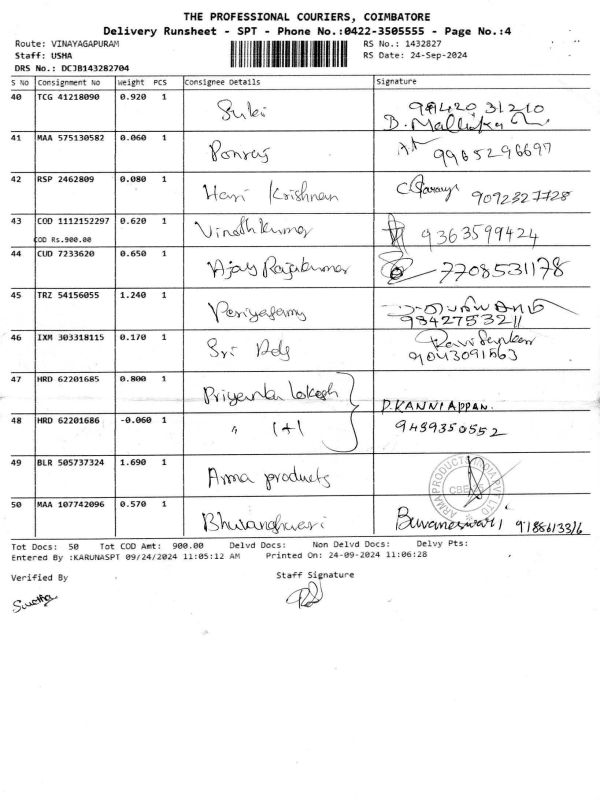 THE PROFESSIONAL COURIERS, COIMBATORE
Delivery Runsheet - SPT - Phone No.:0422-3505555 - Page No.:4
Route: VINAYAGAPURAM
RS No.: 1432827
Staff: USHA
RS Date: 24-Sep-2024
DRS No.: DCJB143282704
S No Consignment No Weight PCS Consignee Details Signature
40 TCG 41218090 0.920 1 Suki 99420 31210
D. Mallika
41 MAA 575130582 0.060 1 Ponraj 9965296697
42 RSP 2462809 0.080 1 Hari Krishnan 9092327728
43 COD 1112152297 0.620 1 Vinoth Kumar 9363599424
COD Rs.900.00
44 CUD 7233620 0.650 1 Ajay Rajakumar 7708531178
45 TRZ 54156055 1.240 1 Periyasamy
9842753211
46 IXM 303318115 0.170 1 Sri Ravi Sankar
9043091563
47 HRD 62201685 0.800 1 Priyanka Lokesh D.KANNIAPPAN.
48 HRD 62201686 -0.060 1 " 1+1 9489350552
49 BLR 505737324 1.690 1 Arma products
ARMAPRODUCTS INDIA PVT LTD
CBE
50 MAA 107742096 0.570 1 Bhuvanghwari Buvaneswari 91886133/6
Tot Docs: 50 Tot COD Amt: 900.00 Delvd Docs: Non Delvd Docs: Delvy Pts:
Entered By :KARUNASPT 09/24/2024 11:05:12 AM Printed On: 24-09-2024 11:06:28
Verified By
Staff Signature